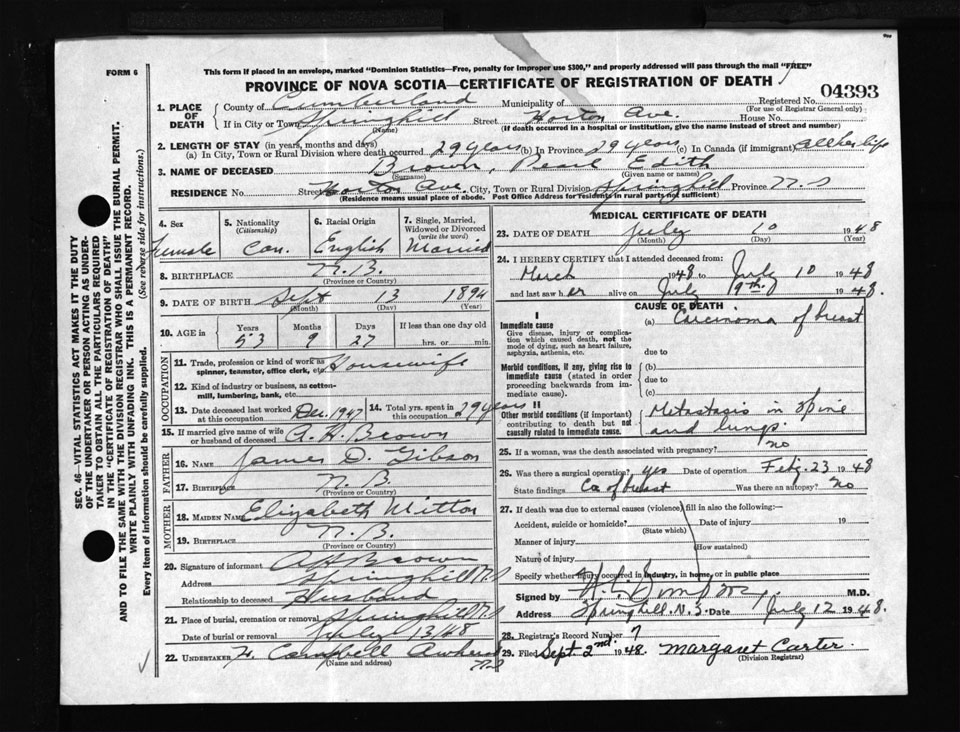 FORM 6
This form if placed in an envelope, marked "Dominion Statistics—Free, penalty for improper use $300," and properly addressed will pass through the mail "FREE"
PROVINCE OF NOVA SCOTIA—CERTIFICATE OF REGISTRATION OF DEATH
04393
SEC. 46—VITAL STATISTICS ACT MAKES IT THE DUTY
OF THE UNDERTAKER OR PERSON ACTING AS UNDER-
TAKER TO OBTAIN ALL THE PARTICULARS REQUIRED
IN THE "CERTIFICATE OF REGISTRATION OF DEATH"
AND TO FILE THE SAME WITH THE DIVISION REGISTRAR WHO SHALL ISSUE THE BURIAL PERMIT.
WRITE PLAINLY WITH UNFADING INK. THIS IS A PERMANENT RECORD.
Every item of information should be carefully supplied. (See reverse side for instructions.)
1. PLACE OF DEATH
County of Cumberland Municipality of Registered No.
(For use of Registrar General only)
If in City or Town Springhill Street Horton Ave. House No.
(Name) (If death occurred in a hospital or institution, give the name instead of street and number)
2. LENGTH OF STAY (in years, months and days)
(a) In City, Town or Rural Division where death occurred 29 years (b) In Province 29 years (c) In Canada (if immigrant) all her life
3. NAME OF DECEASED Brown, Pearl Edith
(Surname) (Given name or names)
RESIDENCE No. Street Horton Ave. City, Town or Rural Division Springhill Province N.S
(Residence means usual place of abode. Post Office Address for residents in rural parts not sufficient)
4. Sex Female
5. Nationality (Citizenship) Can.
6. Racial Origin English
7. Single, Married, Widowed or Divorced (write the word) Married
8. BIRTHPLACE N.B.
(Province or Country)
9. DATE OF BIRTH Sept 13 1894
(Month) (Day) (Year)
10. AGE in Years Months Days If less than one day old
53 9 27 hrs. or min.
OCCUPATION
11. Trade, profession or kind of work as spinner, teamster, office clerk, etc. Housewife
12. Kind of industry or business, as cotton-mill, lumbering, bank, etc.
13. Date deceased last worked at this occupation Dec. 1947
14. Total yrs. spent in this occupation 29 years
15. If married give name of wife or husband of deceased A. H. Brown
FATHER
16. NAME James D. Gibson
17. BIRTHPLACE N.B.
MOTHER
18. MAIDEN NAME Elizabeth Mitton
19. BIRTHPLACE N.B.
(Province or Country)
20. Signature of informant A H Brown
Address Springhill N.S
Relationship to deceased Husband
21. Place of burial, cremation or removal Springhill N.S
Date of burial or removal July 13/48
22. UNDERTAKER H. Campbell Amherst N.S
(Name and address)
MEDICAL CERTIFICATE OF DEATH
23. DATE OF DEATH July 10 1948
(Month) (Day) (Year)
24. I HEREBY CERTIFY that I attended deceased from:
March 1948 to July 10 1948
and last saw her alive on July 9th. 1948.
CAUSE OF DEATH
I
Immediate cause
Give disease, injury or complication which caused death, not the mode of dying, such as heart failure, asphyxia, asthenia, etc.
(a) Carcinoma of breast
due to
Morbid conditions, if any, giving rise to immediate cause (stated in order proceeding backwards from immediate cause).
(b)
due to
(c)
II
Other morbid conditions (if important) contributing to death but not causally related to immediate cause.
Metastasis in Spine
and lungs
25. If a woman, was the death associated with pregnancy? no
26. Was there a surgical operation? yes Date of operation Feb. 23 1948
State findings Ca of breast Was there an autopsy? no
27. If death was due to external causes (violence) fill in also the following:—
Accident, suicide or homicide? Date of injury 19
(State which)
Manner of injury
(How sustained)
Nature of injury
Specify whether injury occurred in industry, in home, or in public place
Signed by M.D.
Address Springhill N.S. Date July 12 1948.
28. Registrar's Record Number 7
29. Filed Sept. 2nd. 1948. Margaret Carter.
(Division Registrar)